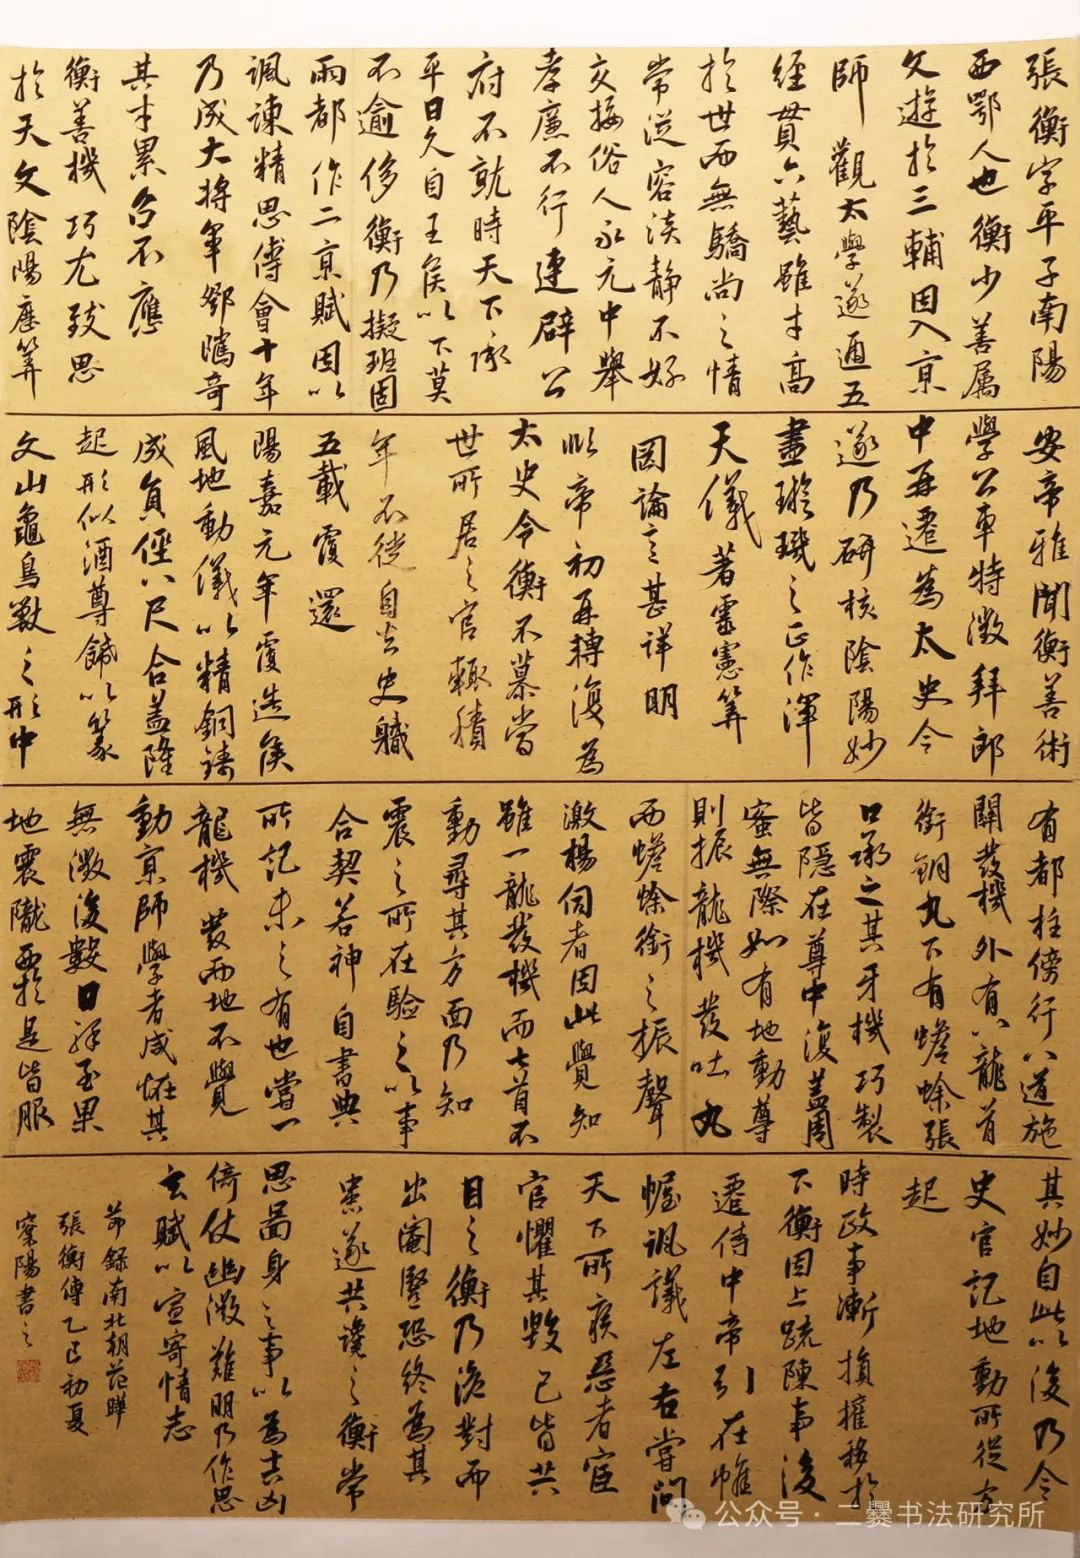 張衡字平子南陽
西鄂人也衡少善属
文遊於三輔因入京
師觀太學遂通五
經貫六藝雖才高
於世而無驕尚之情
常從容淡静不好
交接俗人永元中舉
孝廉不行連辟公
府不就時天下承
平日久自王侯以下莫
不逾侈衡乃擬班固
兩都作二京賦因以
諷諫精思傅會十年
乃成大将軍鄧騭奇
其才累召不應
衡善機巧尤致思
於天文陰陽歷筭
安帝雅聞衡善術
學公車特徵拜郎
中再遷為太史令
遂乃研核陰陽妙
盡璇璣之正作渾
天儀著靈憲筭
罔論言甚詳明
順帝初再轉復為
太史令衡不慕當
世所居之官輒積
年不徙自去史職
五載復還
陽嘉元年復造候
風地動儀以精銅鑄
成負徑八尺合蓋隆
起形似酒尊飾以篆
文山龜鳥獸之形中
有都柱傍行八道施
關發機外有八龍首
銜銅丸下有蟾蜍張
口承之其牙機巧製
皆隐在尊中復蓋周
蜜無際如有地動尊
則振龍機發吐丸
而蟾蜍銜之振聲
激楊伺者因此覺知
雖一龍發機而七首不
動尋其方面乃知
震之所在驗之以事
合契若神自書典
所記未之有也嘗一
龍機發而地不覺
動京師學者咸恠其
無徵後數日驛至果
地震隴西於是皆服
其妙自此以後乃令
史官記地動所從方
起
時政事漸損權移於
下衡因上疏陳事後
遷侍中帝引在帷
幄諷議左右嘗問
天下所疾惡者宦
官懼其毀己皆共
目之衡乃詭對而
出閹豎恐終為其
患遂共讒之衡常
思啚身之事以為吉凶
倚仗幽微難明乃作思
玄賦以宣寄情志
節錄南北朝范曄
張衡傳乙巳初夏
寀陽書之
公众号·二爨书法研究所